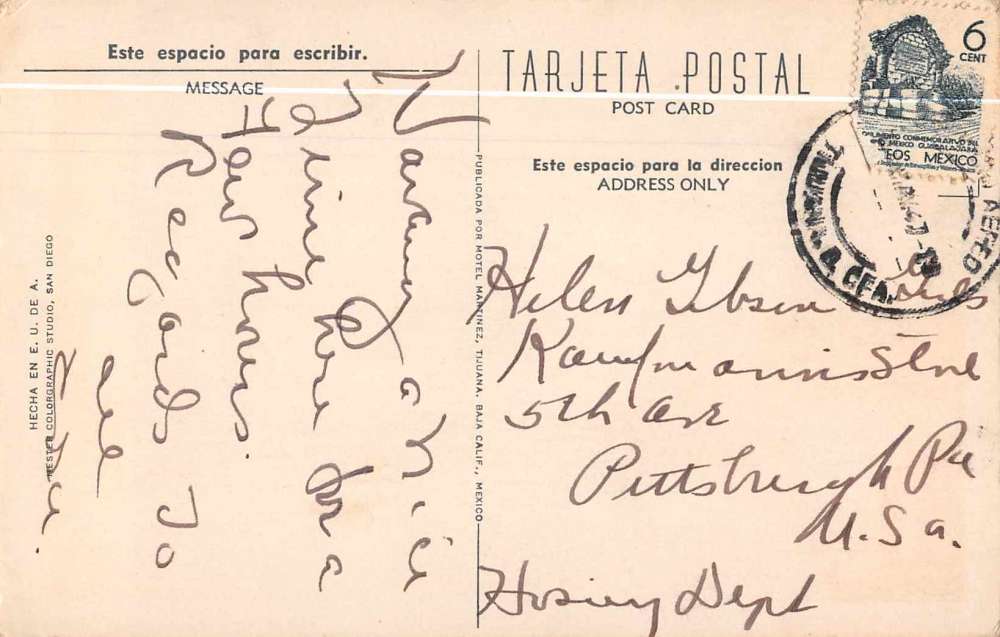 Este espacio para escribir.
MESSAGE
Having a Nice
Time here for a
few hours.
Regards to
all
TARJETA POSTAL
POST CARD
Este espacio para la direccion
ADDRESS ONLY
6
CENT
CONMEMORATIVO DEL
MEXICO GUADALAJARA
EOS MEXICO
AEREO
TIJUANA, B. CFA.
Helen Gibson
Kaufmanns Store
5th Ave
Pittsburgh Pa
U.S.a.
Hosiery Dept
PUBLICADA POR MOTEL MARTINEZ, TIJUANA, BAJA CALIF., MEXICO
HECHA EN E. U. DE A.
COLORGRAPHIC STUDIO, SAN DIEGO